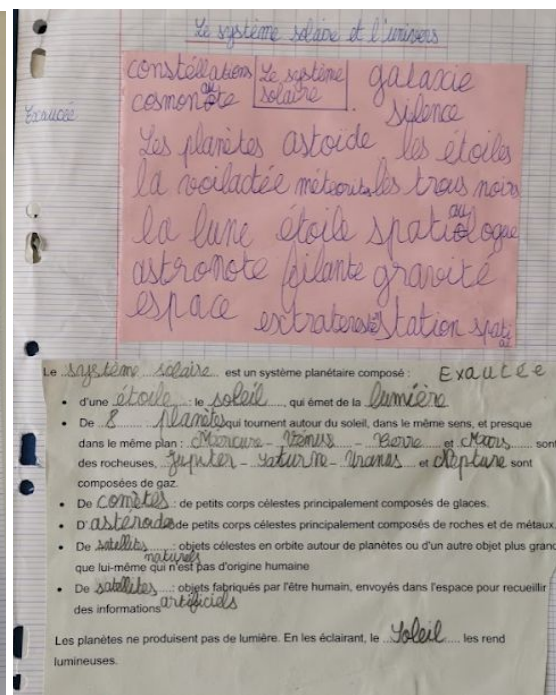 Le système solaire et l'univers
constéllations Le système galaxie
cosmonote solaire silence
au
Exaucée
Les planètes astoïde les étoiles
la voilactée météorites les trous noirs
la lune étoile spatiologue
au
astronote filante gravité
espace extraterestre station spati
al
Le système solaire est un système planétaire composé : Exautée
• d'une étoile : le soleil, qui émet de la lumière
• De 8 planètes qui tournent autour du soleil, dans le même sens, et presque
dans le même plan : Mercure - Vénus - Terre et Mars sont
des rocheuses, Jupiter - Saturne - Uranus et Neptune sont
composées de gaz.
• De comètes : de petits corps célestes principalement composés de glaces.
• D'asteroides de petits corps célestes principalement composés de roches et de métaux.
• De satellites : objets célestes en orbite autour de planètes ou d'un autre objet plus grand
naturels
que lui-même qui n'est pas d'origine humaine
• De satellites : objets fabriqués par l'être humain, envoyés dans l'espace pour recueillir
des informations artificiels
Les planètes ne produisent pas de lumière. En les éclairant, le Soleil les rend
lumineuses.